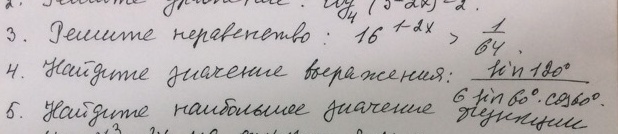 2. Решите уравнение: log₄(5-2x)=2.
3. Решите неравенство: 16^(1-2x) > 1/64.
4. Найдите значение выражения: sin120° / 6 sin60°·cos60°.
5. Найдите наибольшее значение функции